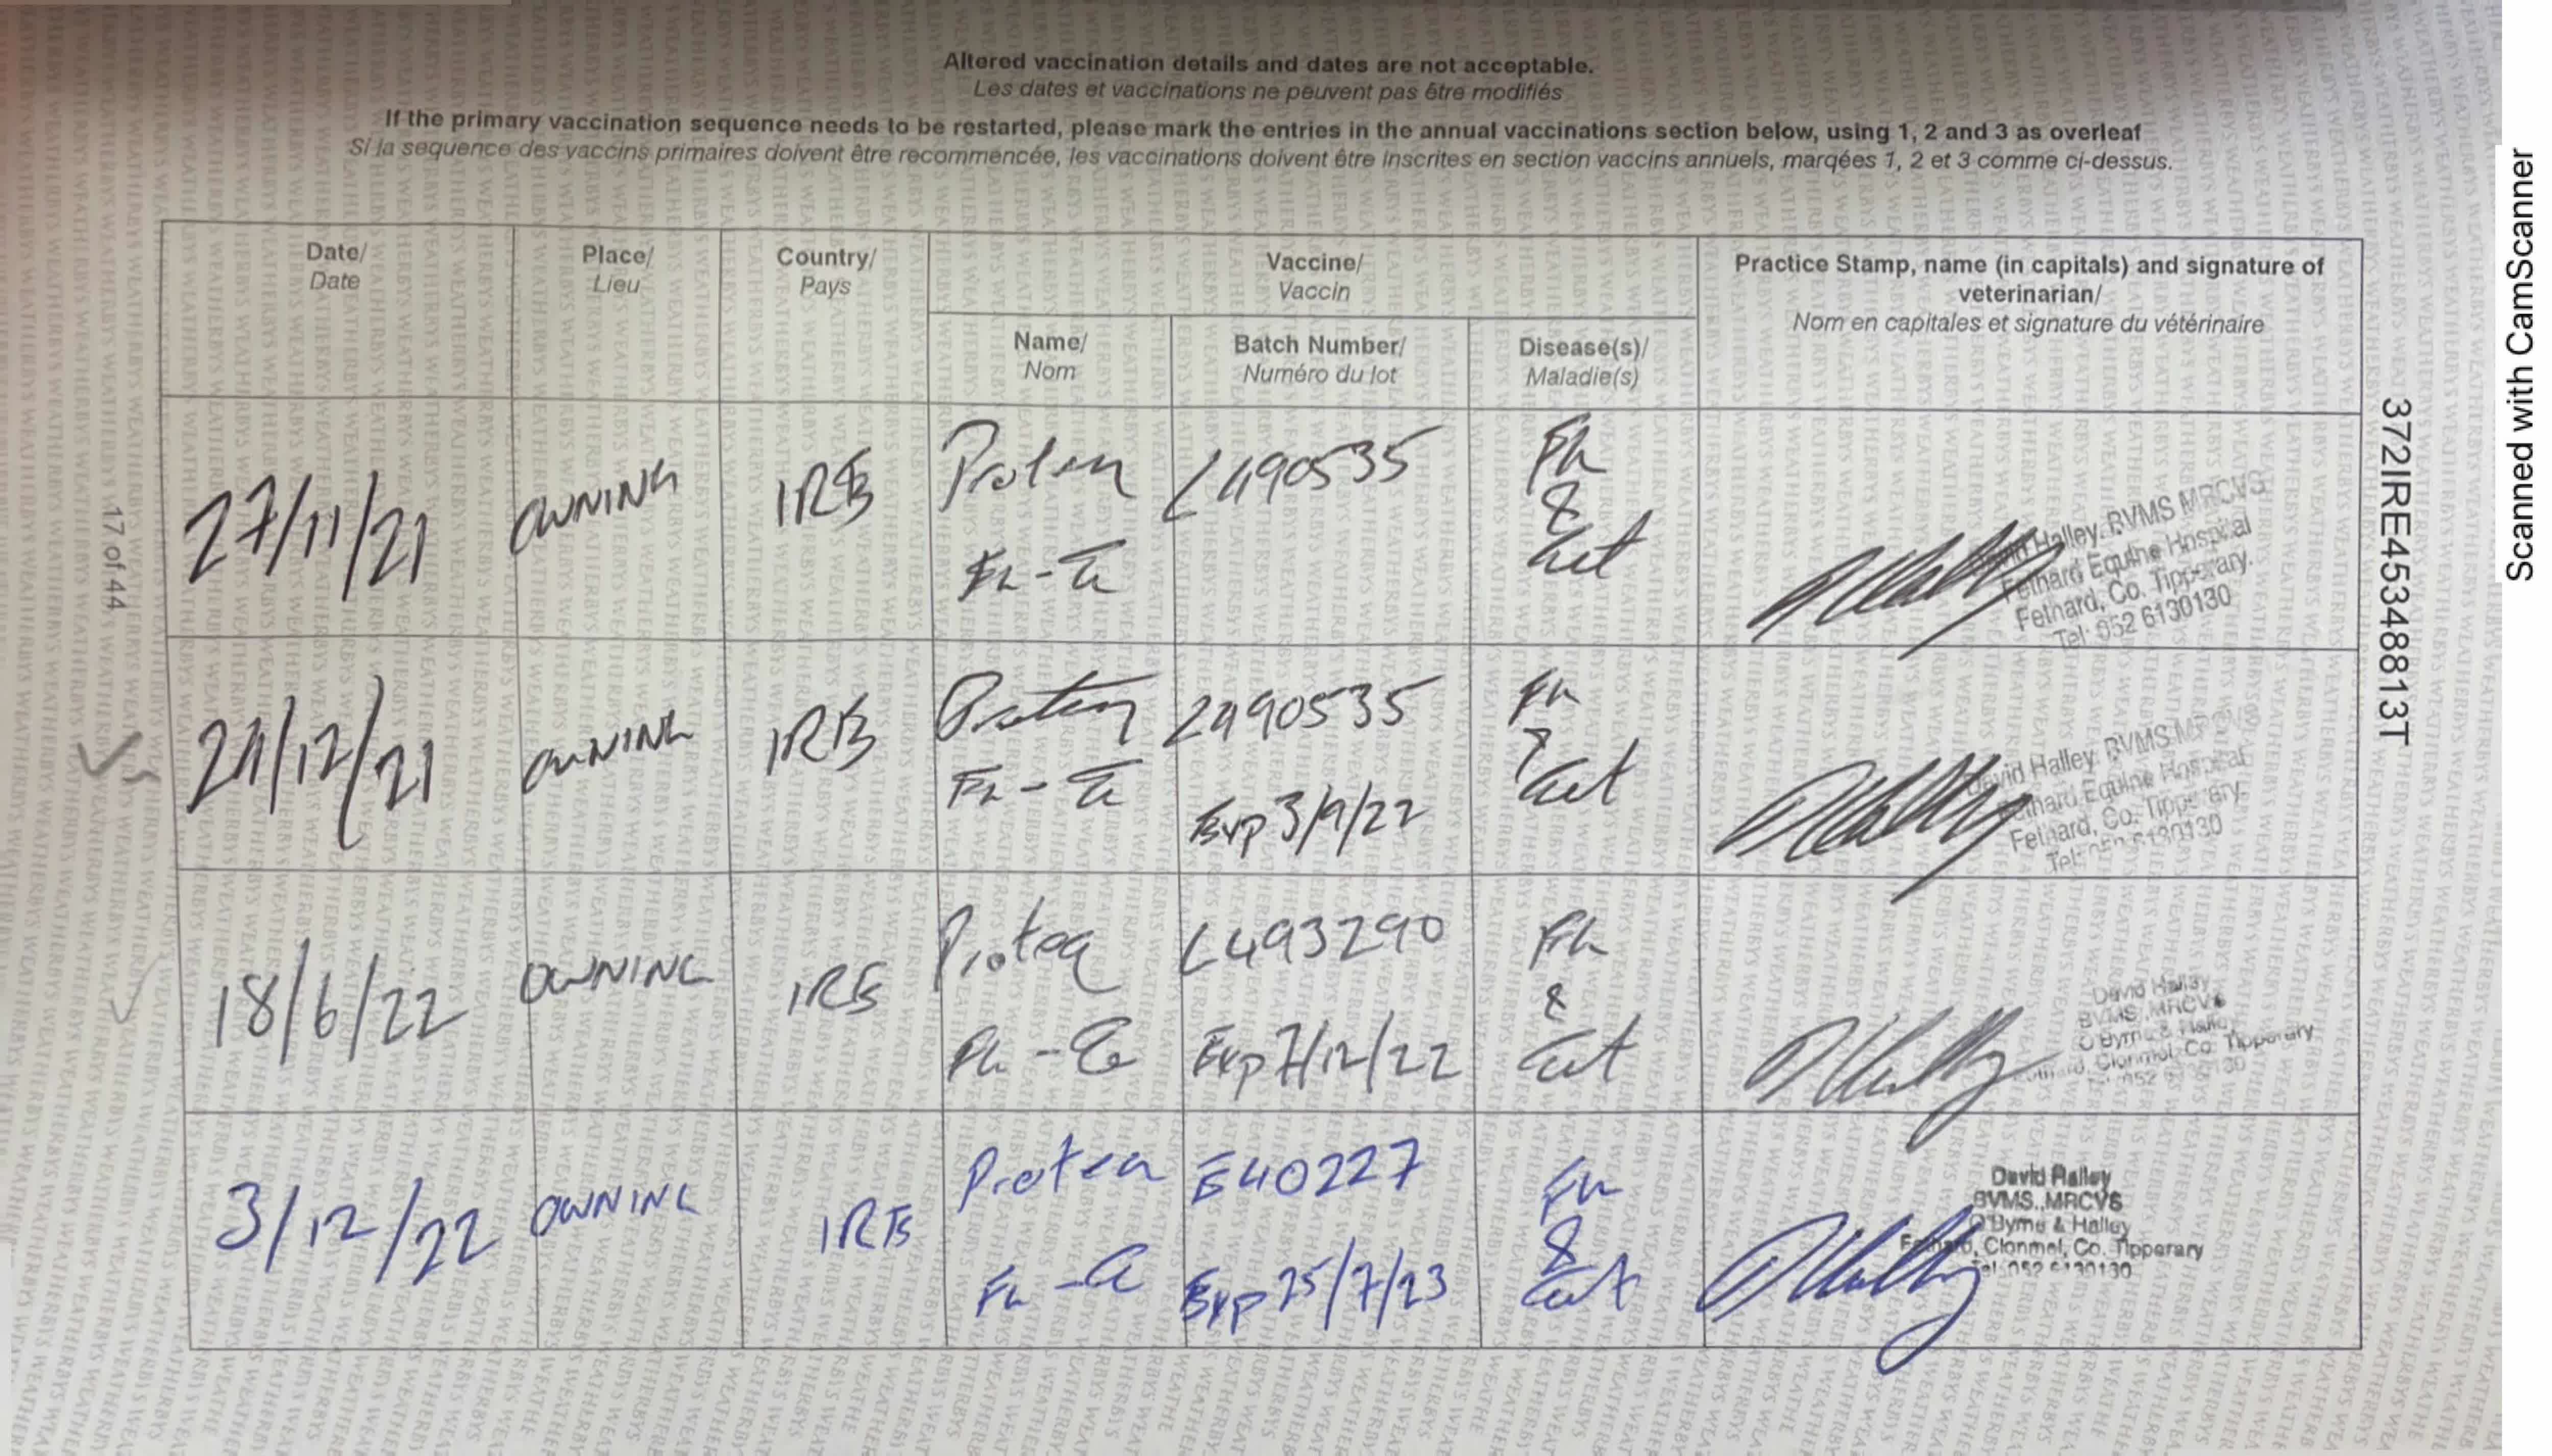 Altered vaccination details and dates are not acceptable.
Les dates et vaccinations ne peuvent pas être modifiés
If the primary vaccination sequence needs to be restarted, please mark the entries in the annual vaccinations section below, using 1, 2 and 3 as overleaf
Si la sequence des vaccins primaires doivent être recommencée, les vaccinations doivent être inscrites en section vaccins annuels, marqées 1, 2 et 3 comme ci-dessus.
Date/
Date
Place/
Lieu
Country/
Pays
Vaccine/
Vaccin
Name/
Nom
Batch Number/
Numéro du lot
Disease(s)/
Maladie(s)
Practice Stamp, name (in capitals) and signature of
veterinarian/
Nom en capitales et signature du vétérinaire
27/11/21 OWNING IRE L490535
David Halley. BVMS MRCVS
Fethard Equine Hospital
Fethard, Co. Tipperary.
Tel: 052 6130130
/12/21 OWNING IRE L490535
Exp 3/9/22
David Halley. BVMS MRCVS
Fethard Equine Hospital
Fethard, Co. Tipperary.
Tel:
18/6/22 OWNING IRE Proteq L493290
Exp 7/12/22
David Halley
BVMS.,MRCVS
O'Byrne & Halley
Clonmel, Co. Tipperary
3/12/22 OWNING IRE Proteq E40227
Exp 25/7/23
David Halley
BVMS.,MRCVS
O'Byrne & Halley
Fethard, Clonmel, Co. Tipperary
Tel: 052 6130130
17 of 44
372IRE45348813T
Scanned with CamScanner